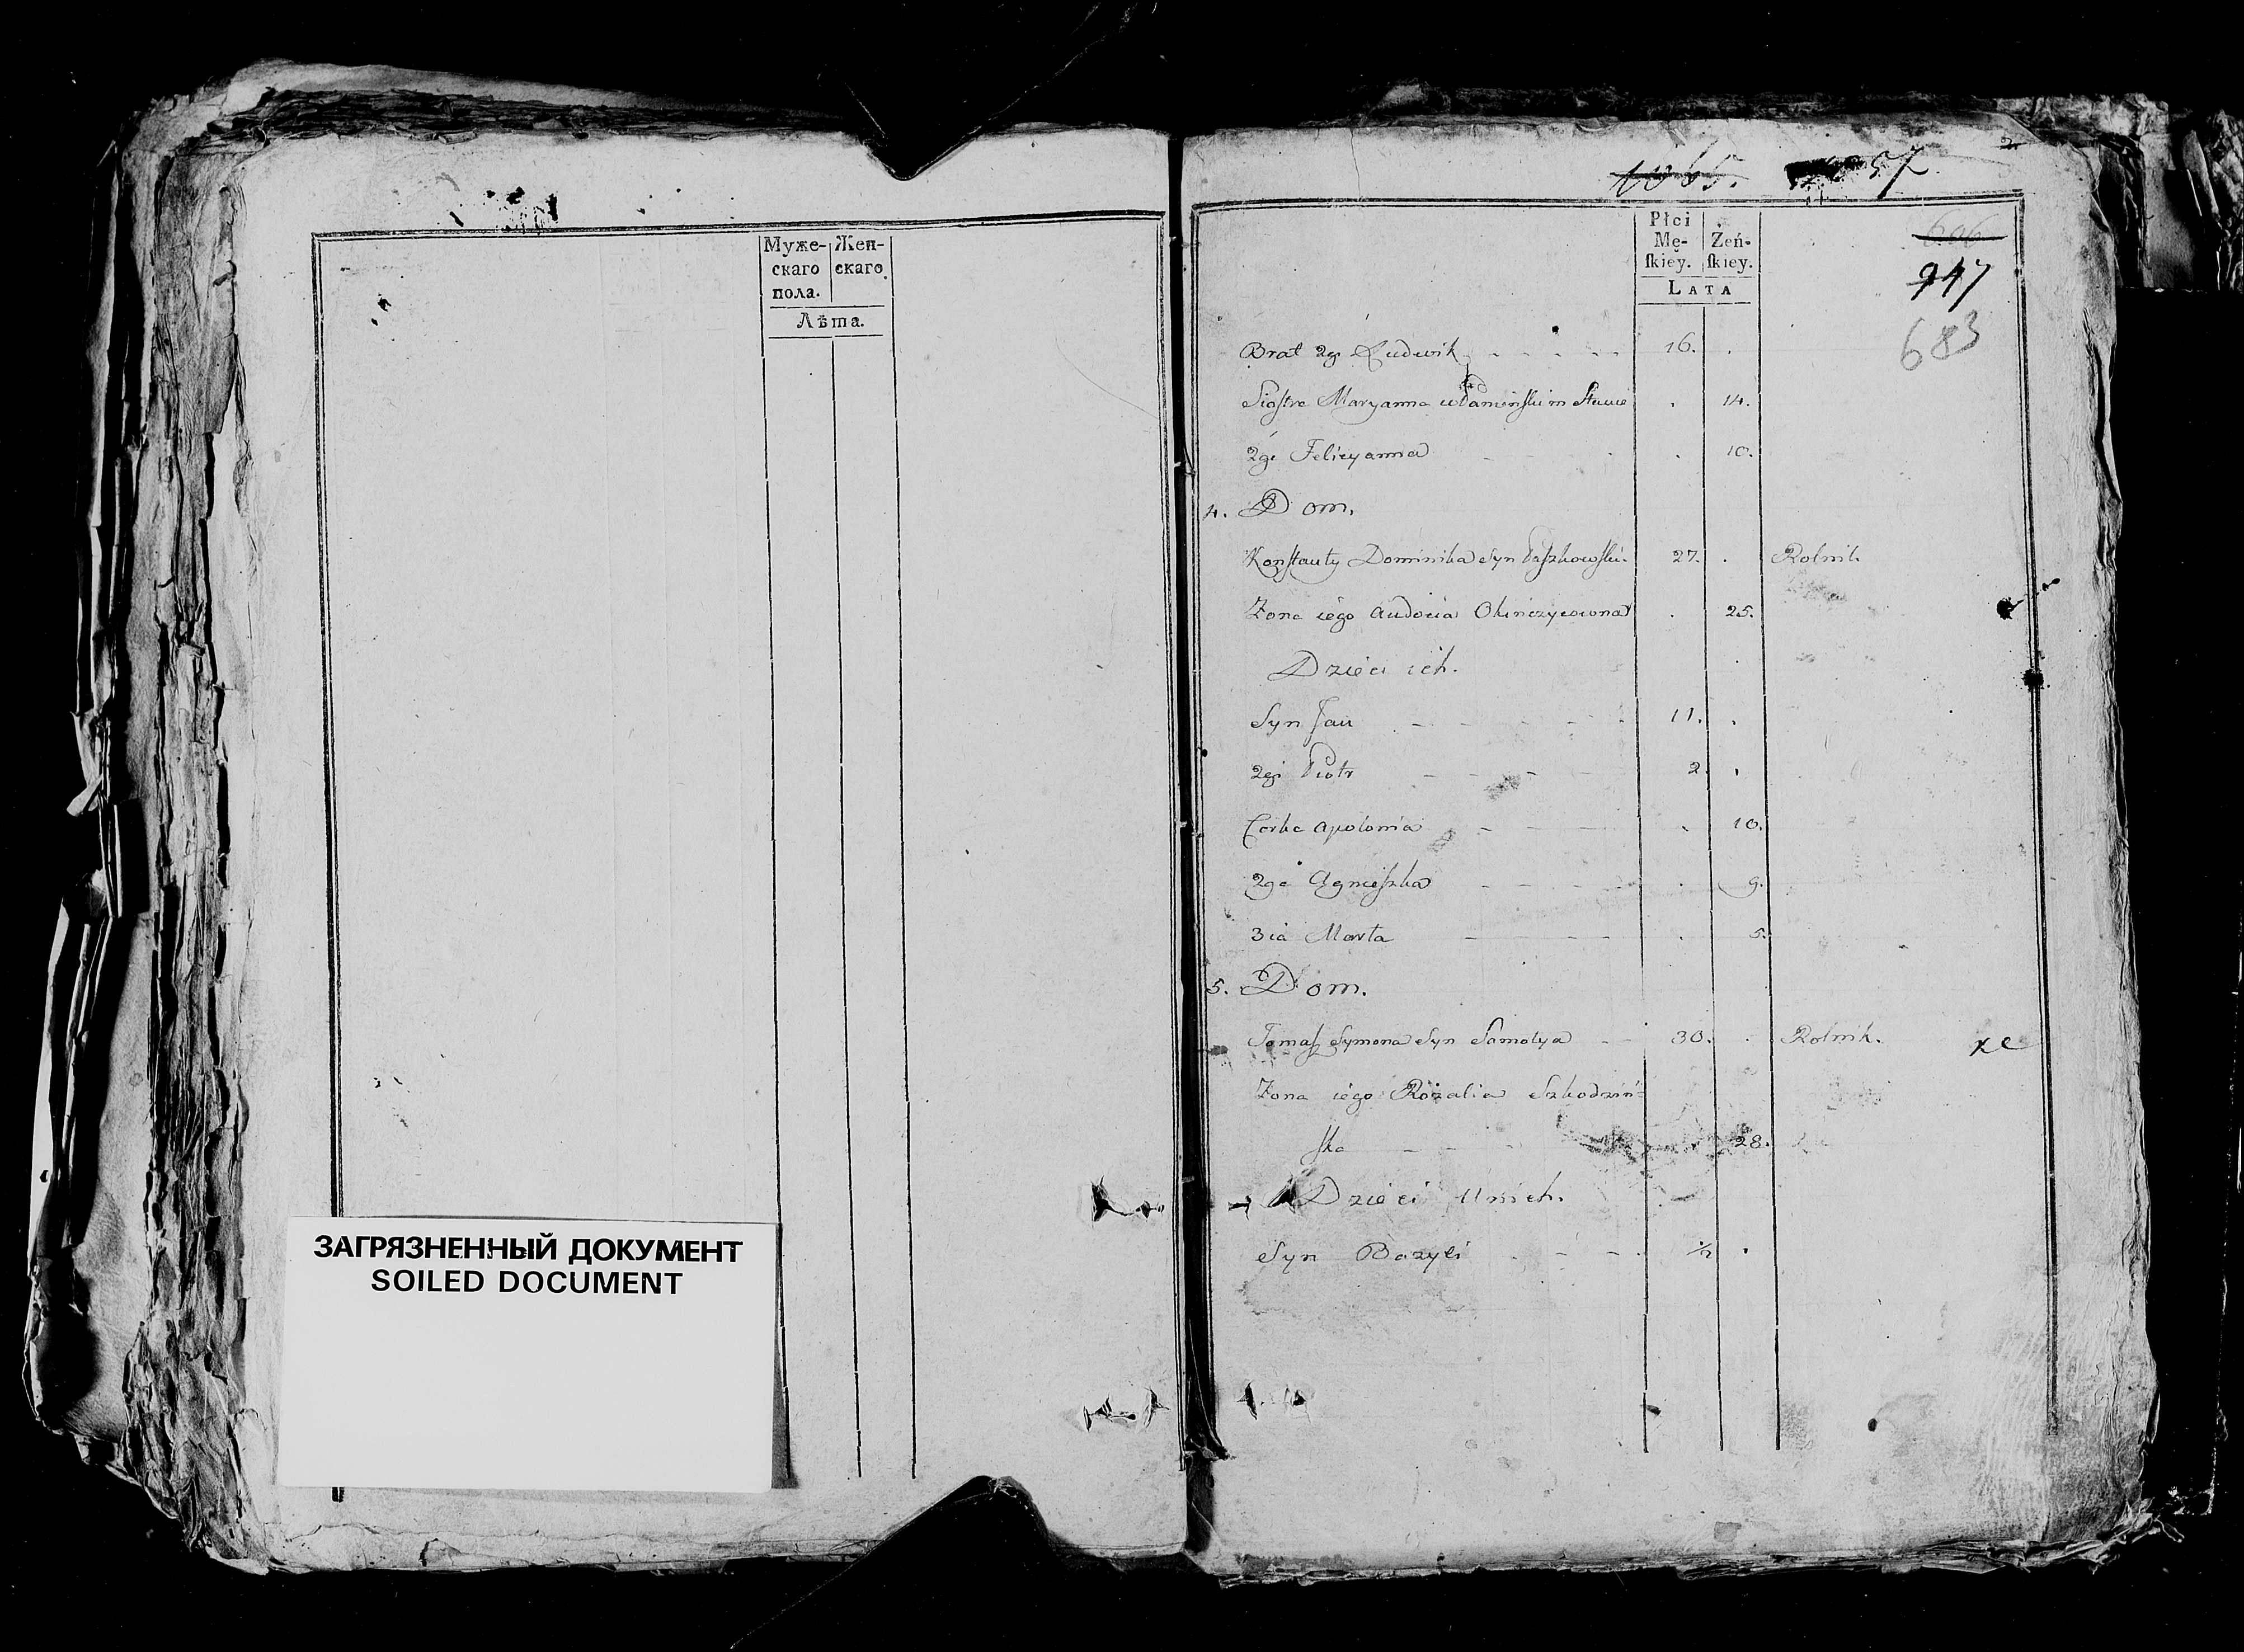 Муже- Жен-
скаго скаго
пола.
Лѣта.
ЗАГРЯЗНЕННЫЙ ДОКУМЕНТ
SOILED DOCUMENT
1065. 57.
Płci
Mę- Żeń-
ſkiey. ſkiey.
LATA
606
947
683
Brat 2gi Ludwik 16.
Siostra Maryanna w stanie 14.
2ga Felicyanna 10.
4. Dom.
Konstanty Dominika Syn Paszkowski 27. Rolnik
Żona iego Audocia 25.
Dzieci ich.
Syn Jan 11.
2gi Piotr 2.
Corka Apolonia 10.
2ga Agnieszka 9.
3ia Marta 5.
5. Dom.
Tomasz Symona Syn Samotya 30. Rolnik.
Żona iego Rozalia Szkodziń-
ska 28.
Dzieci Unich.
Syn Bazyli ½